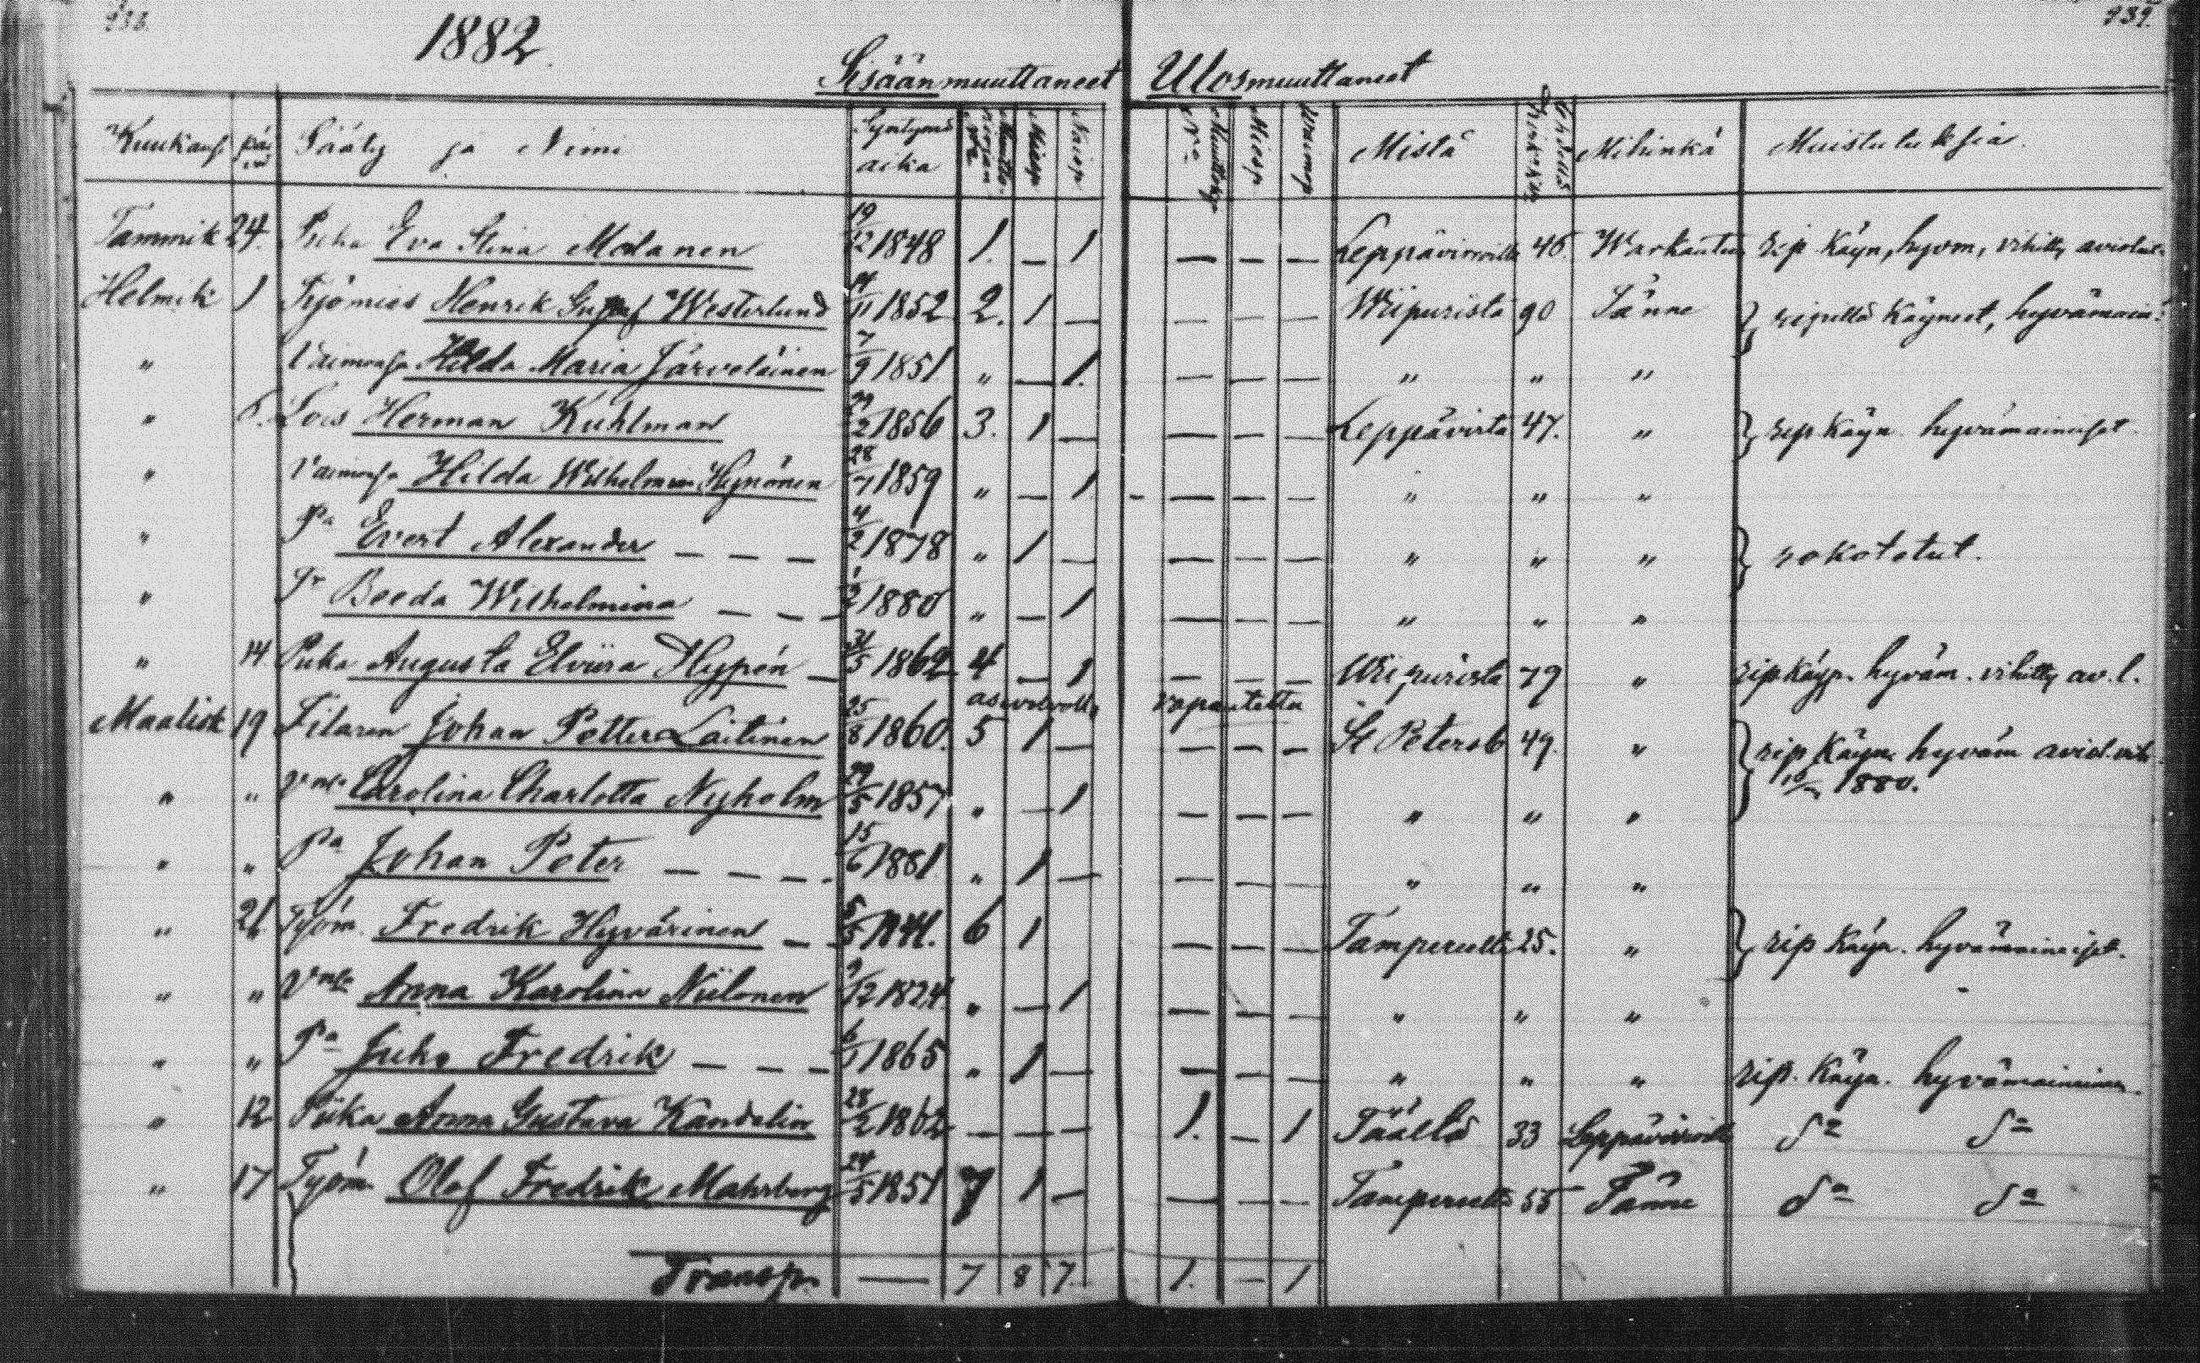 1882
939.
Sisäänmuuttaneet Ulosmuuttaneet
Kuukausi päivä Sääty ja Nimi Syntymä aika Miesp Naisp Miesp Mistä Mihinkä Muistutuksia.
Tammik 24. Piika Eva Stina Molanen 19/12 1848 1. — 1 — — — Leppävirroilta 46. Warkauteen rip käyn, hyvm, vihitty aviol.
Helmik 1 Työmies Henrik Gustaf Westerlund 14/11 1852 2. 1 — — — — Wiipurista 90 Tänne } ripillä käyneet, hyvämain:
" Vaimonsa Hilda Maria Järveläinen 7/9 1851 " — 1. — — — " " "
" 6. Herman Kuhlman 29/2 1856 3. 1 — — — — Leppävirta 47. " } rip käyn. hyvämaineiset
" Vaimonsa Hilda Wilhelmina Hynönen 28/7 1859 " — 1 — — — " " "
" Pa Evert Alexander — — — 4/2 1878 " 1 — — — — " " " } rokotetut.
" Tr Beeda Wilhelmina — — — 1/2 1880 " — 1 — — — " " "
" 14 Piika Augusta Elviira Hypén — 31/5 1862 4 — 1 — — — Wiipurista 79 " rip käyn. hyväm. vihitty av. l.
vapautettu
Maalisk 19 Johan Petter Laitinen 25/8 1860. 5 1 — — — — St Petersb 49. " } rip käyn hyväm aviol. vih.
" " Vmsa Carolina Charlotta Nyholm 29/5 1857 " — 1 — — — " " " 1880.
" " Pa Johan Peter — — — 15/6 1881 " 1 — — — — " " "
" 21 Työm. Fredrik Hyvärinen — — 5/5 1841. 6 1 — — — Tampereelta 25. " } rip käyn. hyvämaineiset.
" " Vmsa Anna Karolina Niilonen 9/12 1824 " — 1 — — — " " "
" " Pa Juho Fredrik — — — 6/1 1865 " 1 — — — — " " " rip. käyn. hyvämaineinen.
" 12 Piika Anna Gustava Kandelin 28/2 1862 — — — 1. — 1 Täältä 33 Leppävirroille do do
" 17 Työm. Olof Fredrik Mahrberg 24/5 1851 7 1 — — — — Tampereelta 55 Tänne do do
Transp. — 7 8 7 1. — 1